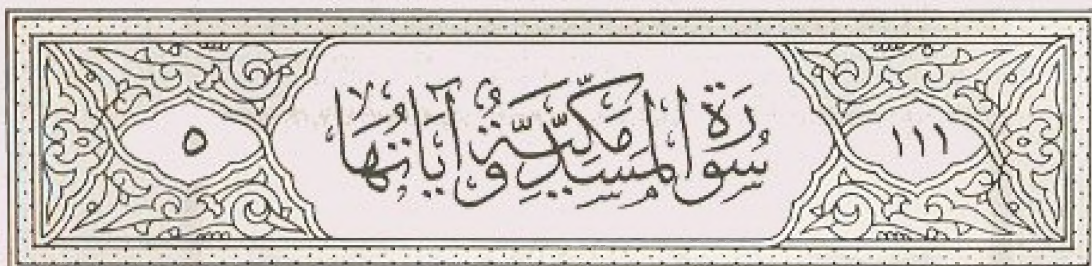 ١١١
سُورَةُ المَسَدِ مَكِّيَّةٌ وَآيَاتُهَا
٥